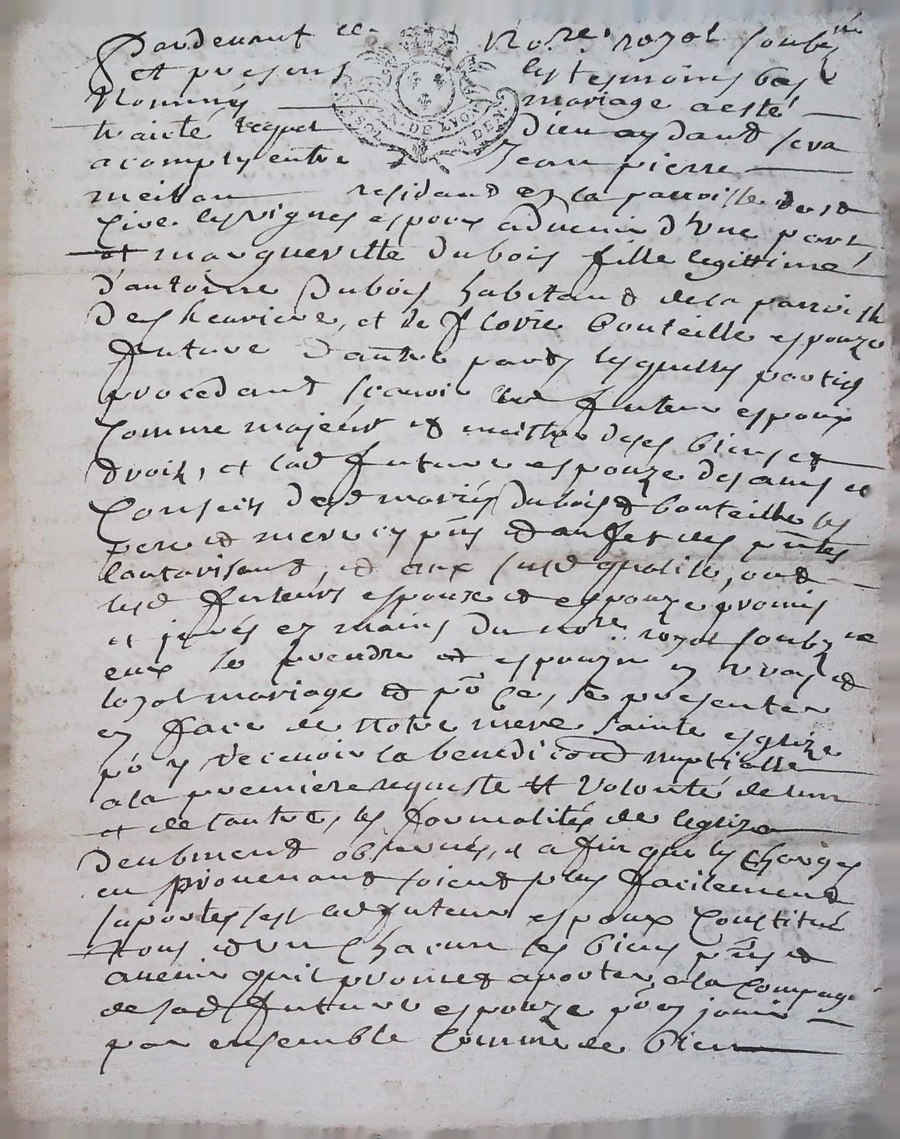 Pardevant le No.re royal soubz né
et presens les tesmoins bas
Nommés mariage a esté
traicté lequel Dieu aydand sera
acomply entre Jean pierre
meillan residand en la parroisse de st
les vignes espoux advenir d'Une part
et margueritte dubois fille legittime
d'antoine Dubois habitand de la parroisse
Des heurieve, et de florie bouteille espouze
future d'autre part lesquelles parties
procedant scavoir led futeur espoux
Comme majeur et maitre de ses biens et
droit, et lad future espouze de lavis et
Conseils desd mariés Dubois et bouteille ses
pere et mere ey pns et
lautorisant, et aux susd qualité, ont
lesd futeurs espoux et espouze promis
et jurés ez mains du nore royal soubz ne
eux se prendre et espouzer en vray et
loyal mariage et po ce, se presenter
en face de notre mere sainte esglize
po y Recevoir la benediction nuptialle
a la premiere requiste et volonté de lun
et de lautre, les formalités de leglize
deubment observés, et afin que les charges
en provenand soiend plus facilement
suportés led futeur espoux Constitué
tous et un Chacun ses biens pns et
avenir quil promet aporter, a la Compagé
de sad future espouze po en jouir
par ensemble Comme de bien
SOL N. DE LYON DEN